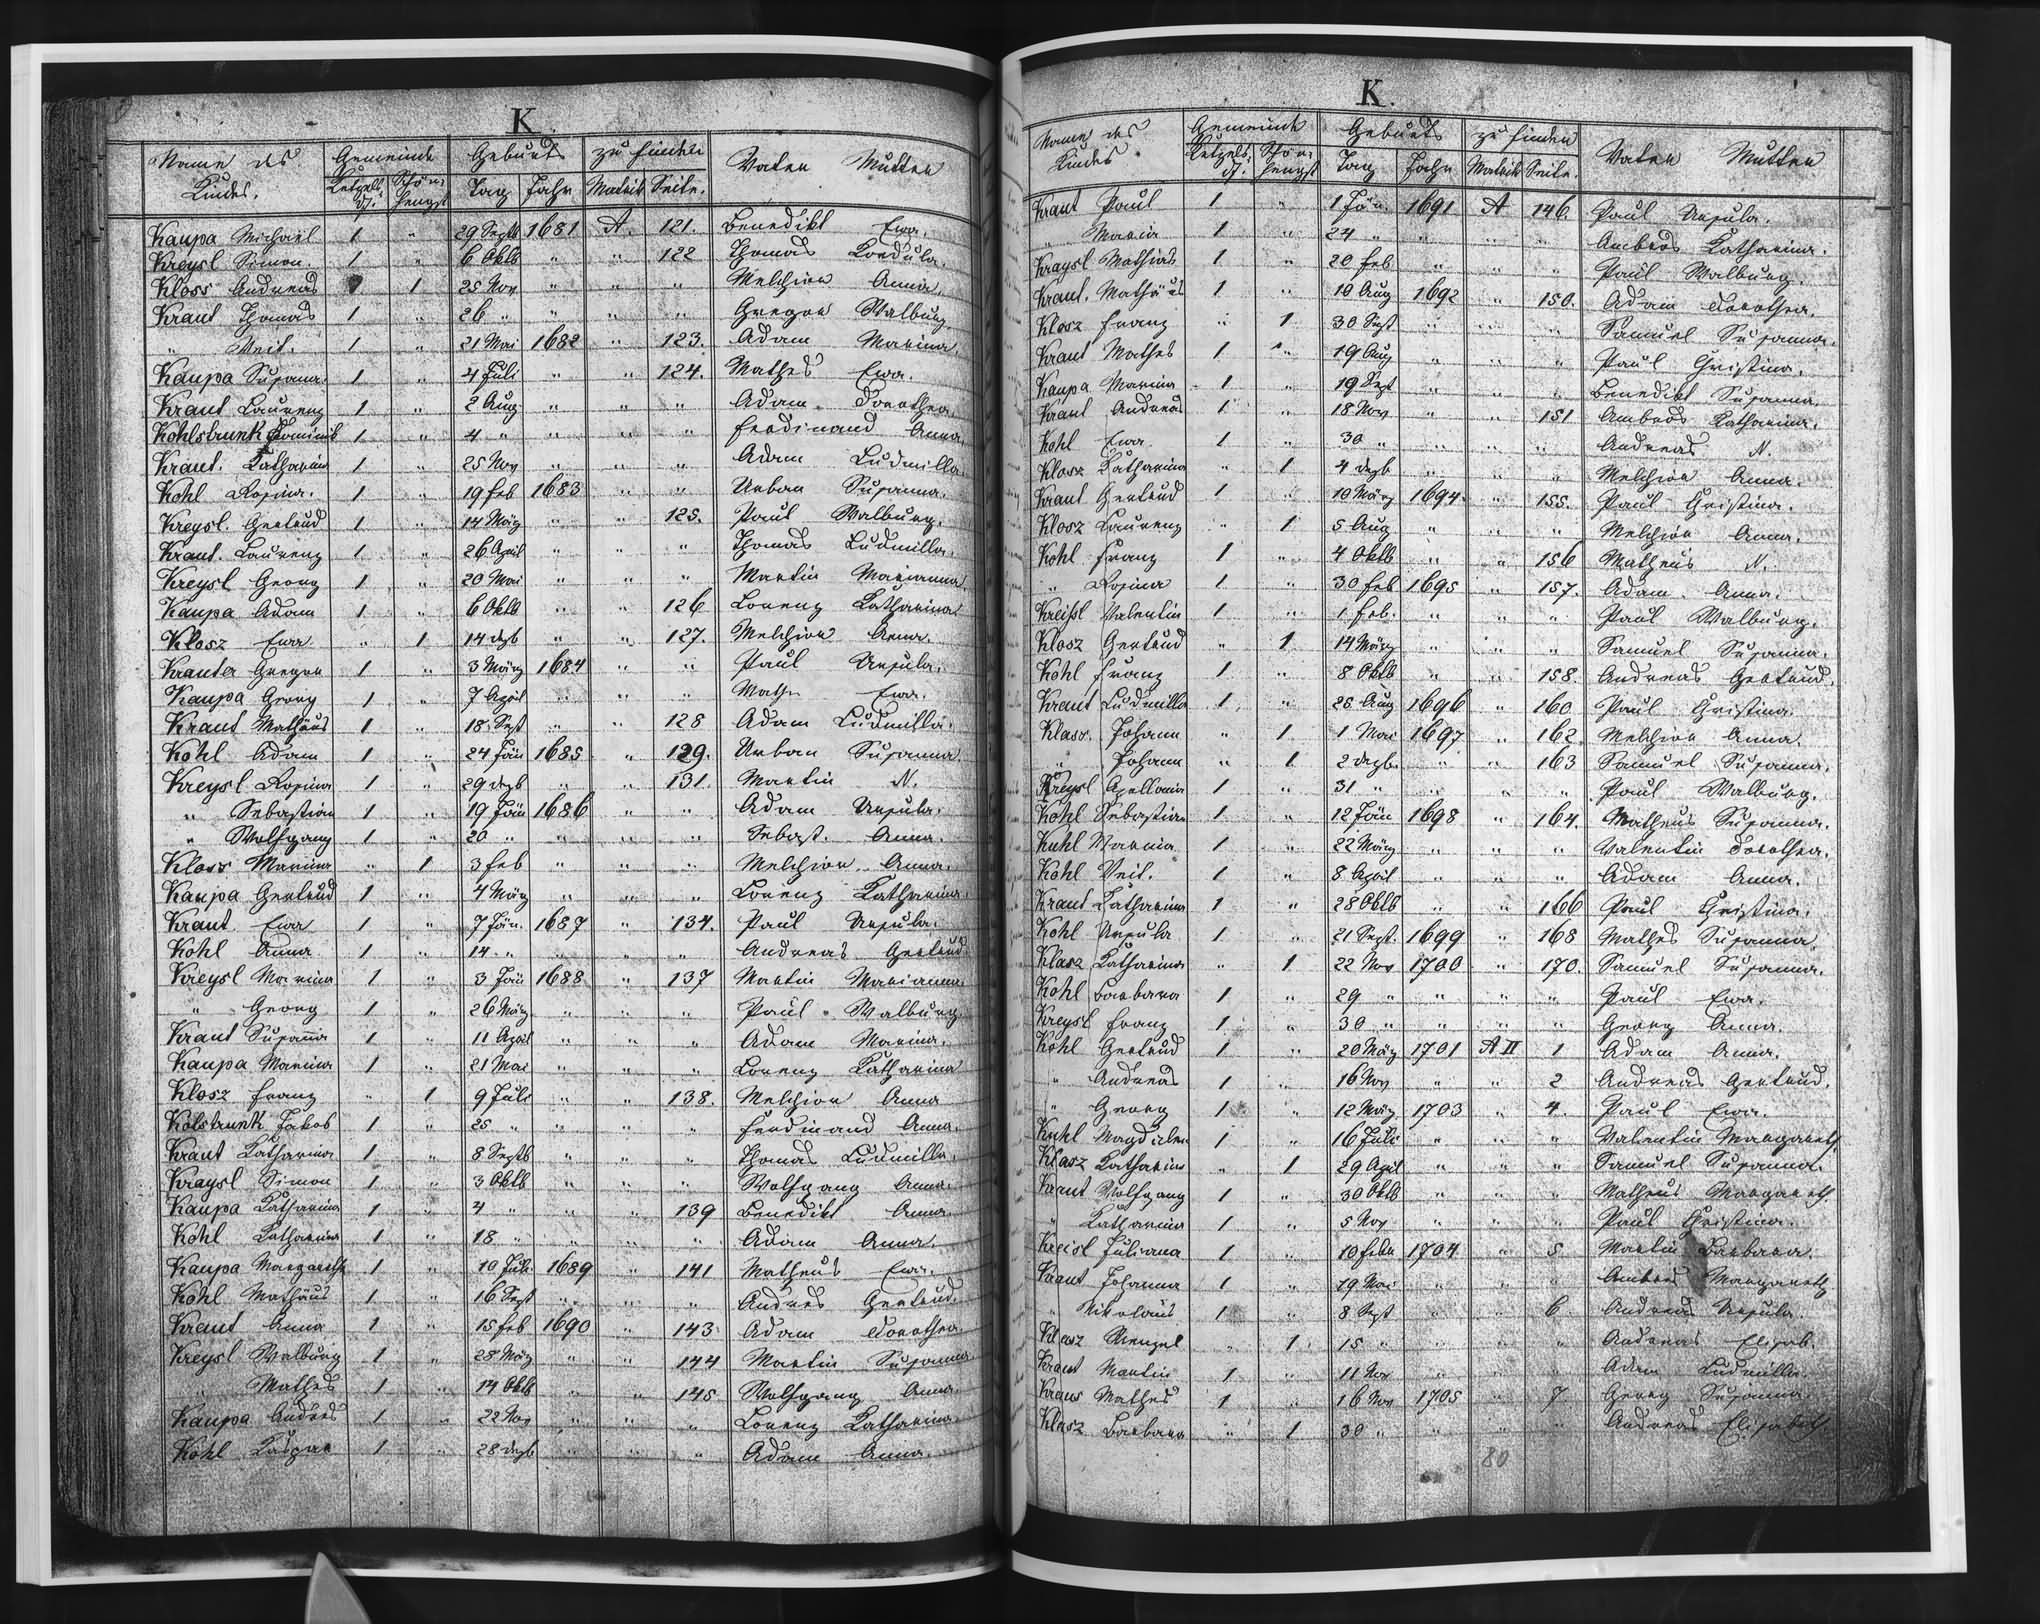 K.
Name des Kindes. Gemeinde Geburts zu finden Vater Mutter
Ketzelsdf. Schönhengst Tag Jahr Matrik Seite.
Kaupa Michael 1 " 29 Septb 1681 A. 121. Benedikt Ewa.
Kreysl Simon. 1 " 6 Oktb " " 122 Thomas Kordula.
Kloss Andreas 1 25 Nov " " " Melchior Anna.
Kraut Thomas 1 " 26 " " " " Gregor Walburg
" Veit. 1 " 21 Mai 1682 " 123. Adam Marina.
Kaupa Susana. 1 " 4 Juli " " 124. Mathes Ewa.
Kraut Laurenz 1 " 2 Aug " " " Adam Dorothea.
Kohlstrunk Dominik 1 " 4 " " " " Ferdinand Anna
Kraut. Katharina 1 " 25 Nov " " " Adam Ludmilla
Kohl Rosina. 1 " 19 Feb 1683 " " Urban Susanna.
Kreysl. Gertrud 1 " 14 März " " 125. Paul Walburg.
Kraut. Laurenz 1 " 26 April " " " Thomas Ludmilla.
Kreysl Georg 1 " 20 Mai " " " Martin Marianna
Kaupa Adam 1 " 6 Oktb " " 126 Lorenz Katharina
Klosz Ewa " 1 14 dezb " " 127. Melchior Anna.
Krauter Gregor 1 " 3 März 1684 " " Paul Ursula.
Kaupa Georg 1 " 7 April " " " Mathes Ewa.
Kraut Mathäus 1 " 18 Sept " " 128 Adam Ludmilla.
Kohl Adam 1 " 24 Jän 1685 " 129. Urban Susanna
Kreysl Rosina 1 " 29 dezb " " 131. Martin N.
" Sebastian 1 " 19 Jän 1686 " " Adam Ursula.
" Wolfgang 1 " 20 " " " " Sebast. Anna.
Kloss Marina " 1 3 Feb " " " Melchior Anna.
Kaupa Gertrud 1 " 4 März " " " Lorenz Katharina
Kraut Ewa 1 " 7 Jän. 1687 " 134. Paul Ursula.
Kohl Anna 1 " 14. " " " " Andreas Gertrud
Kreysl Marina 1 " 3 Jän 1688 " 137 Martin Marianna
" Georg 1 " 26 März " " " Paul Walburg
Kraut Susanna 1 " 11 April " " " Adam Marina.
Kaupa Marina 1 " 21 Mai " " " Lorenz Katharina
Klosz Franz " 1 9 Juli " " 138. Melchior Anna
Kolstrunk Jakob 1 " 25 " " " " Ferdinand Anna.
Kraut Katharina 1 " 8 Septb " " " Thomas Ludmilla.
Kraysl Simon 1 " 3 Oktb " " " Wolfgang Anna.
Kaupa Katharina 1 " 4 " " " 139 Benedikt Anna
Kohl Katharina 1 " 18 " " " " Adam Anna.
Kaupa Margareth 1 " 10 Juli 1689 " 141 Matheus Ewa.
Kohl Mathäus 1 " 16 Sept " " " Andres Gertrud.
Kraut Anna 1 " 15 Feb 1690 " 143 Adam Dorothea.
Kreysl Walburg 1 " 28 März " " 144 Martin Susanna
" Mathes 1 " 14 Oktb " " 145 Wolfgang Anna.
Kaupa Andres 1 " 22 Nov " " " Lorenz Katharina.
Kohl Kaspar 1 " 28 dezb " " " Adam Anna.
K.
Name des Kindes. Gemeinde Geburts zu finden Vater Mutter
Ketzelsdf. Schönhengst Tag Jahr Matrik Seite.
Kraut Paul 1 " 1 Jän. 1691 A 146. Paul Ursula.
" Maria 1 " 24 " " " " Ambros Katharina.
Kraysl Mathias 1 " 20 Feb " " " Paul Walburg.
Kraut. Mathäus 1 " 10 Aug 1692 " 150. Adam Dorothea.
Klosz Franz " 1 30 Sept " " " Samuel Susanna.
Kraut Mathes 1 " 19 Aug " " " Paul Christina.
Kaupa Marina 1 " 19 Sept " " " Benedikt Susanna.
Kraut Andreas 1 " 18 Nov " " 151 Ambros Katharina.
Kohl Ewa 1 " 30 " " " " Andreas N.
Klosz Katharina " 1 4 dezb " " " Melchior Anna.
Kraut Gertrud 1 " 10 März 1694 " 155. Paul Christina.
Klosz Laurenz " 1 5 Aug " " " Melchior Anna.
Kohl Franz 1 " 4 Oktb " " 156 Matheus N.
" Rosina 1 " 30 Feb 1695 " 157. Adam. Anna.
Kreißl Valentin 1 " 1 Feb. " " " Paul Walburg.
Klosz Gertrud " 1 14 März " " " Samuel Susanna.
Kohl Franz 1 " 8 Oktb " " 158. Andreas Gertrud.
Kraut Ludmilla 1 " 26 Aug 1696 " 160 Paul Christina.
Klasz. Johann " 1 1 Mai 1697 " 162. Melchior Anna.
" Johann " 1 2 dezb " " 163 Samuel Susanna.
Kreysl Apellonia 1 " 31 " " " " Paul Walburg.
Kohl Sebastian 1 " 12 Jän 1698 " 164. Matheus Susanna.
Kuhl Marina 1 " 22 März " " " Valentin Dorothea.
Kohl Veit. 1 " 8 April " " " Adam Anna.
Kraut Katharina 1 " 28 Oktb " " 166 Paul Christina.
Kohl Ursula 1 " 21 Sept. 1699 " 168 Mathes Susanna
Klasz Katharina " 1 22 Nov 1700 " 170. Samuel Susanna.
Kohl Barbara 1 " 29 " " " " Paul Ewa.
Kreysl Franz 1 " 30 " " " " Georg Anna.
Kohl Gertrud 1 " 20 März 1701 A II 1 Adam Anna.
" Andreas 1 " 16 Nov " " 2 Andreas Gertrud.
" Georg 1 " 12 März 1703 " 4. Paul Ewa.
Kuhl Magdalen 1 " 16 Juli " " " Valentin Margareth.
Klasz Katharina " 1 29 April " " " Samuel Susanna.
Kraut Wolfgang 1 " 30 Oktb " " " Matheus Margareth
" Katharina 1 " 5 Nov " " " Paul Christina.
Kreisl Juliana 1 " 10 Feb 1704 " 5 Martin Barbara.
Kraut Johanna 1 " 19 Mai " " " Ambros Margareth
" Nikolaus 1 " 8 Sept " " 6 Andreas Ursula.
Klasz Wenzel " 1 15 " " " " Andreas Elisab.
Kraut Martin 1 " 11 Nov " " " Adam Ludmilla.
Kraus Mathes 1 " 16 Nov 1705 " 7 Georg Susanna.
Klasz Barbara " 1 30 " " " " Andreas Elisabeth
80